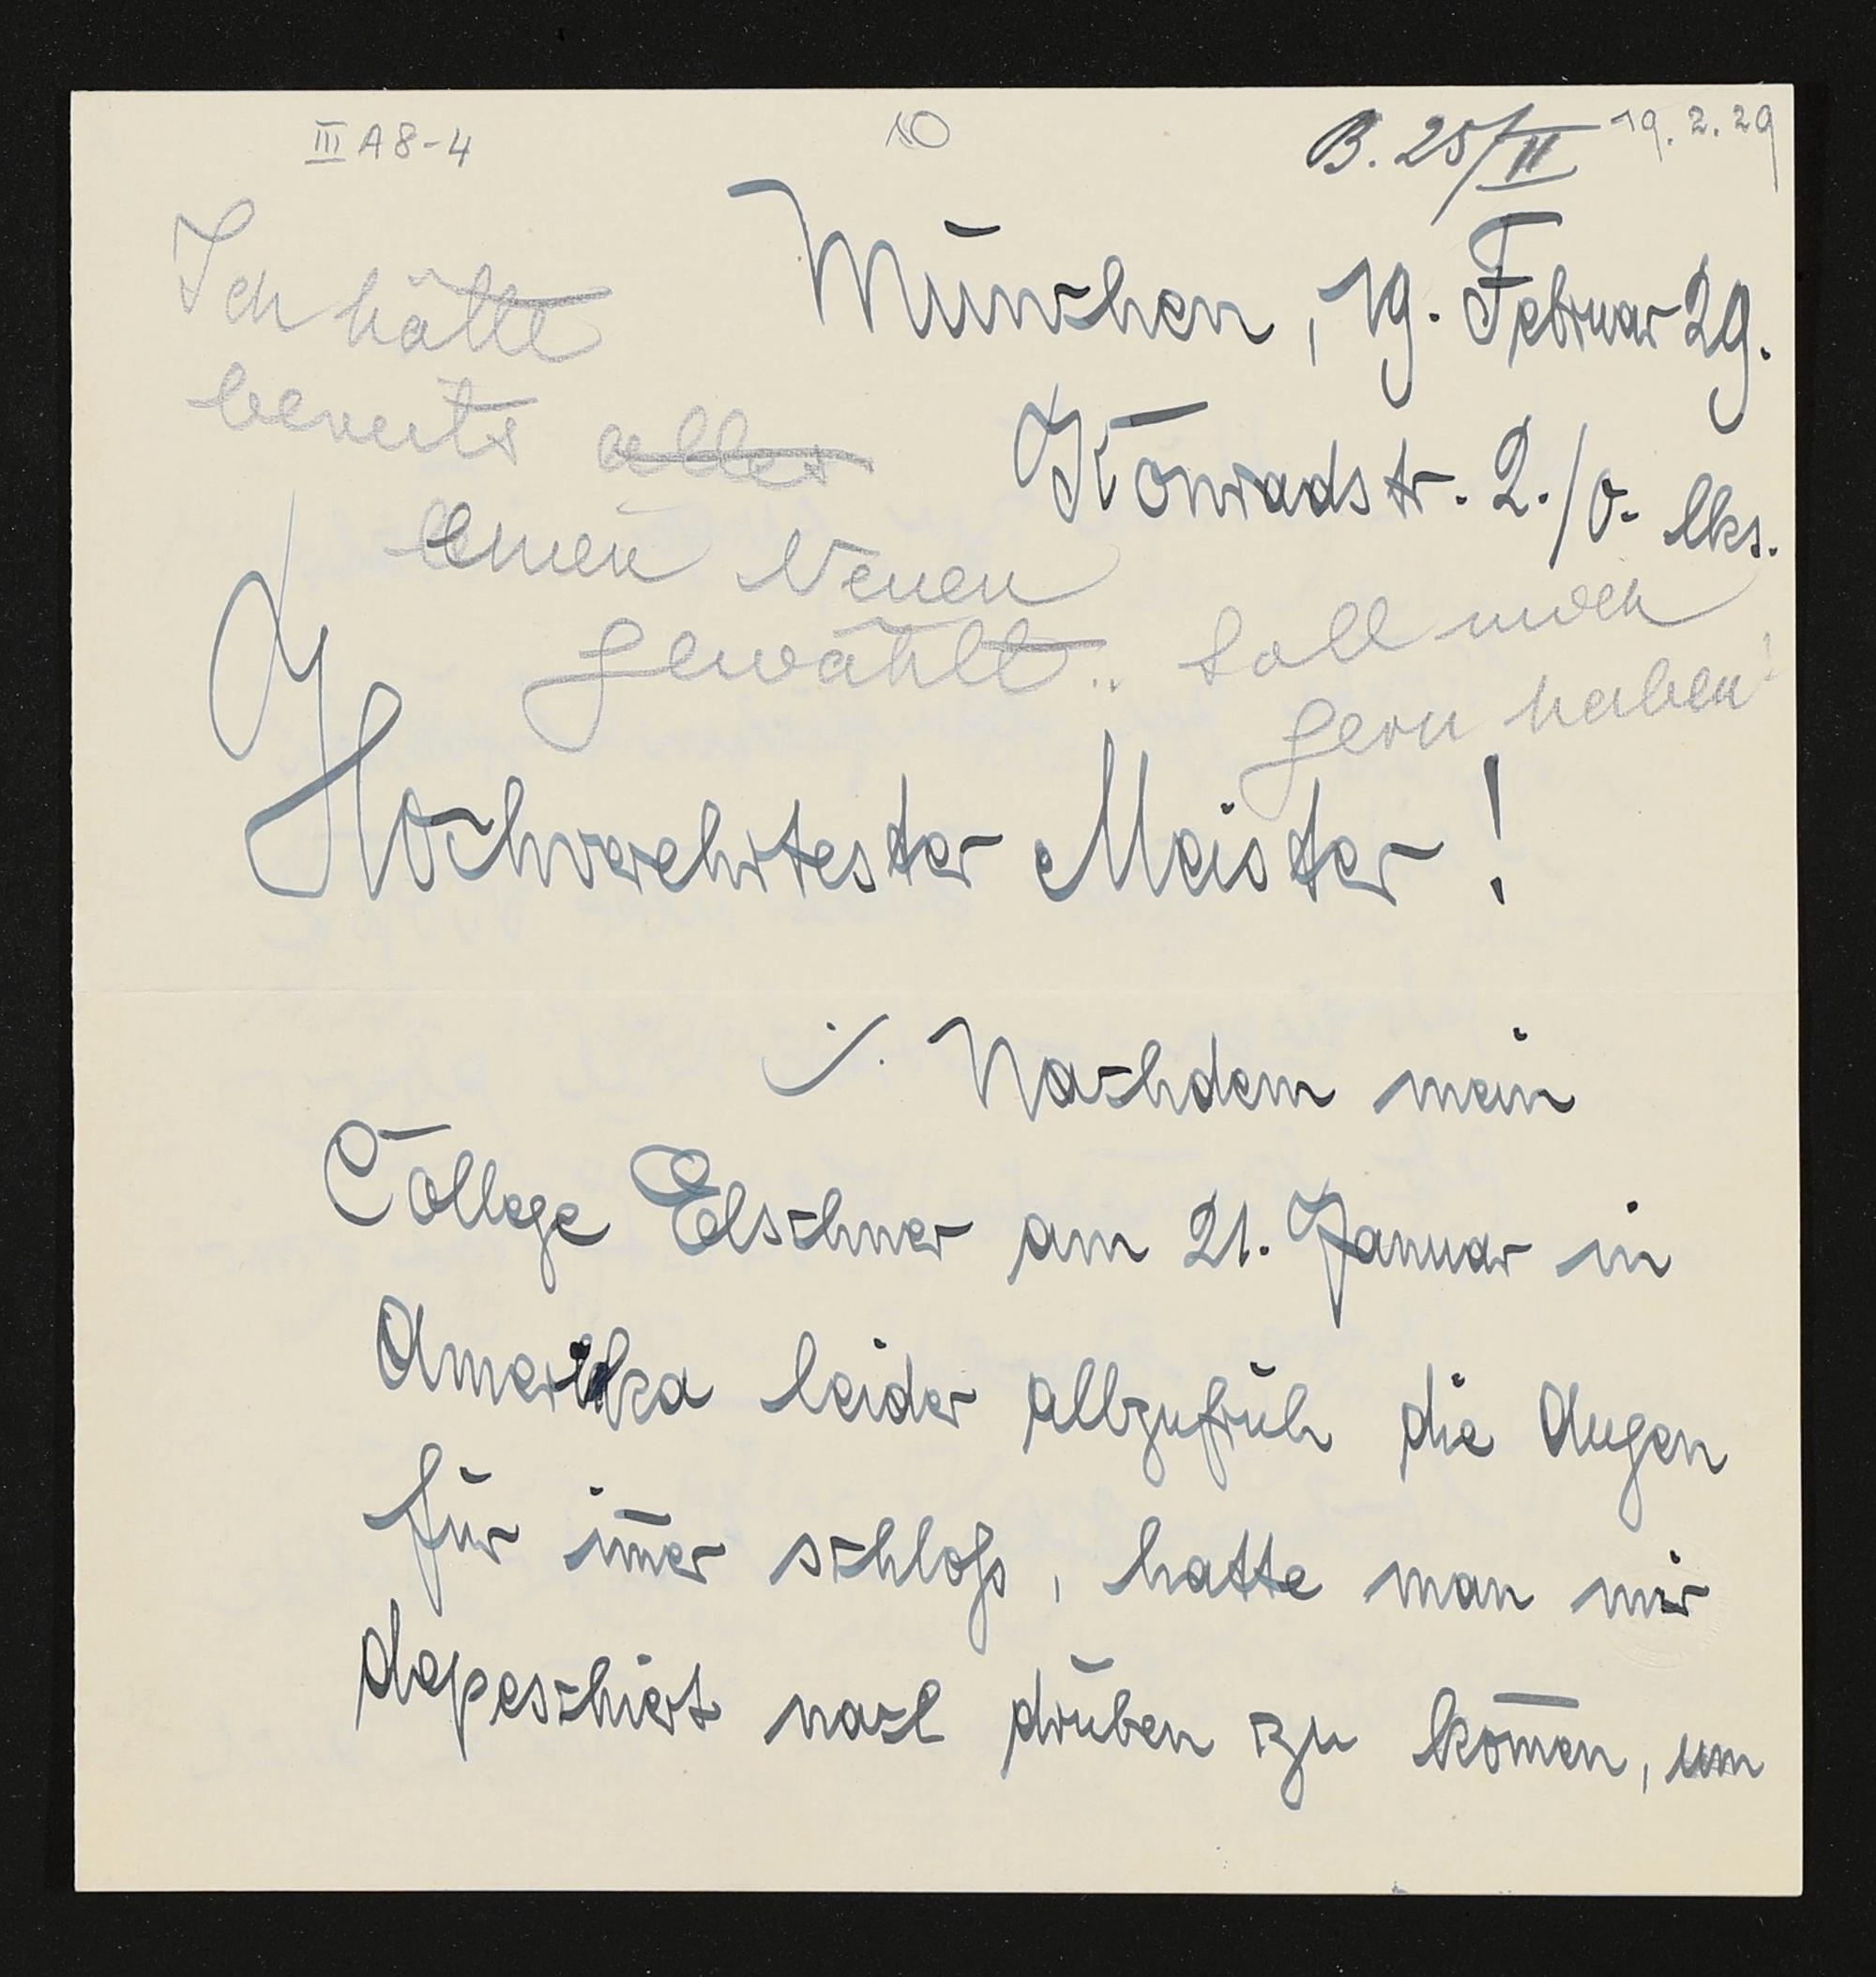 III A 8-4
10
B. 25/II
19.2.29
München, 19. Februar 29.
Konradstr. 2./0. lks.
Ich hätte
bereits alles
einen Neuen
gewählt.. Soll mich
gern haben!
Hochverehrtester Meister!
./. Nachdem mein
College Elschner am 21. Januar in
Amerika leider allzufrüh die Augen
für im̅er schloß, hatte man mir
depeschiert nach drüben zu kom̅en, um